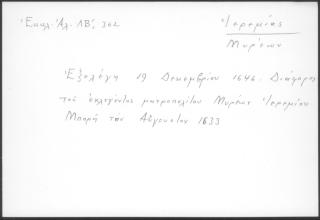 Ἐκκλ. Ἀλ. ΛΒ', 362
Ἱερεμίας
Μυρέων
Ἐξελέγη 19 Δεκεμβρίου 1646. Διάδοχος
τοῦ ἐκλεγέντος μητροπολίτου Μυρέων Ἱερεμίου
τὸν Αὔγουστον 1633